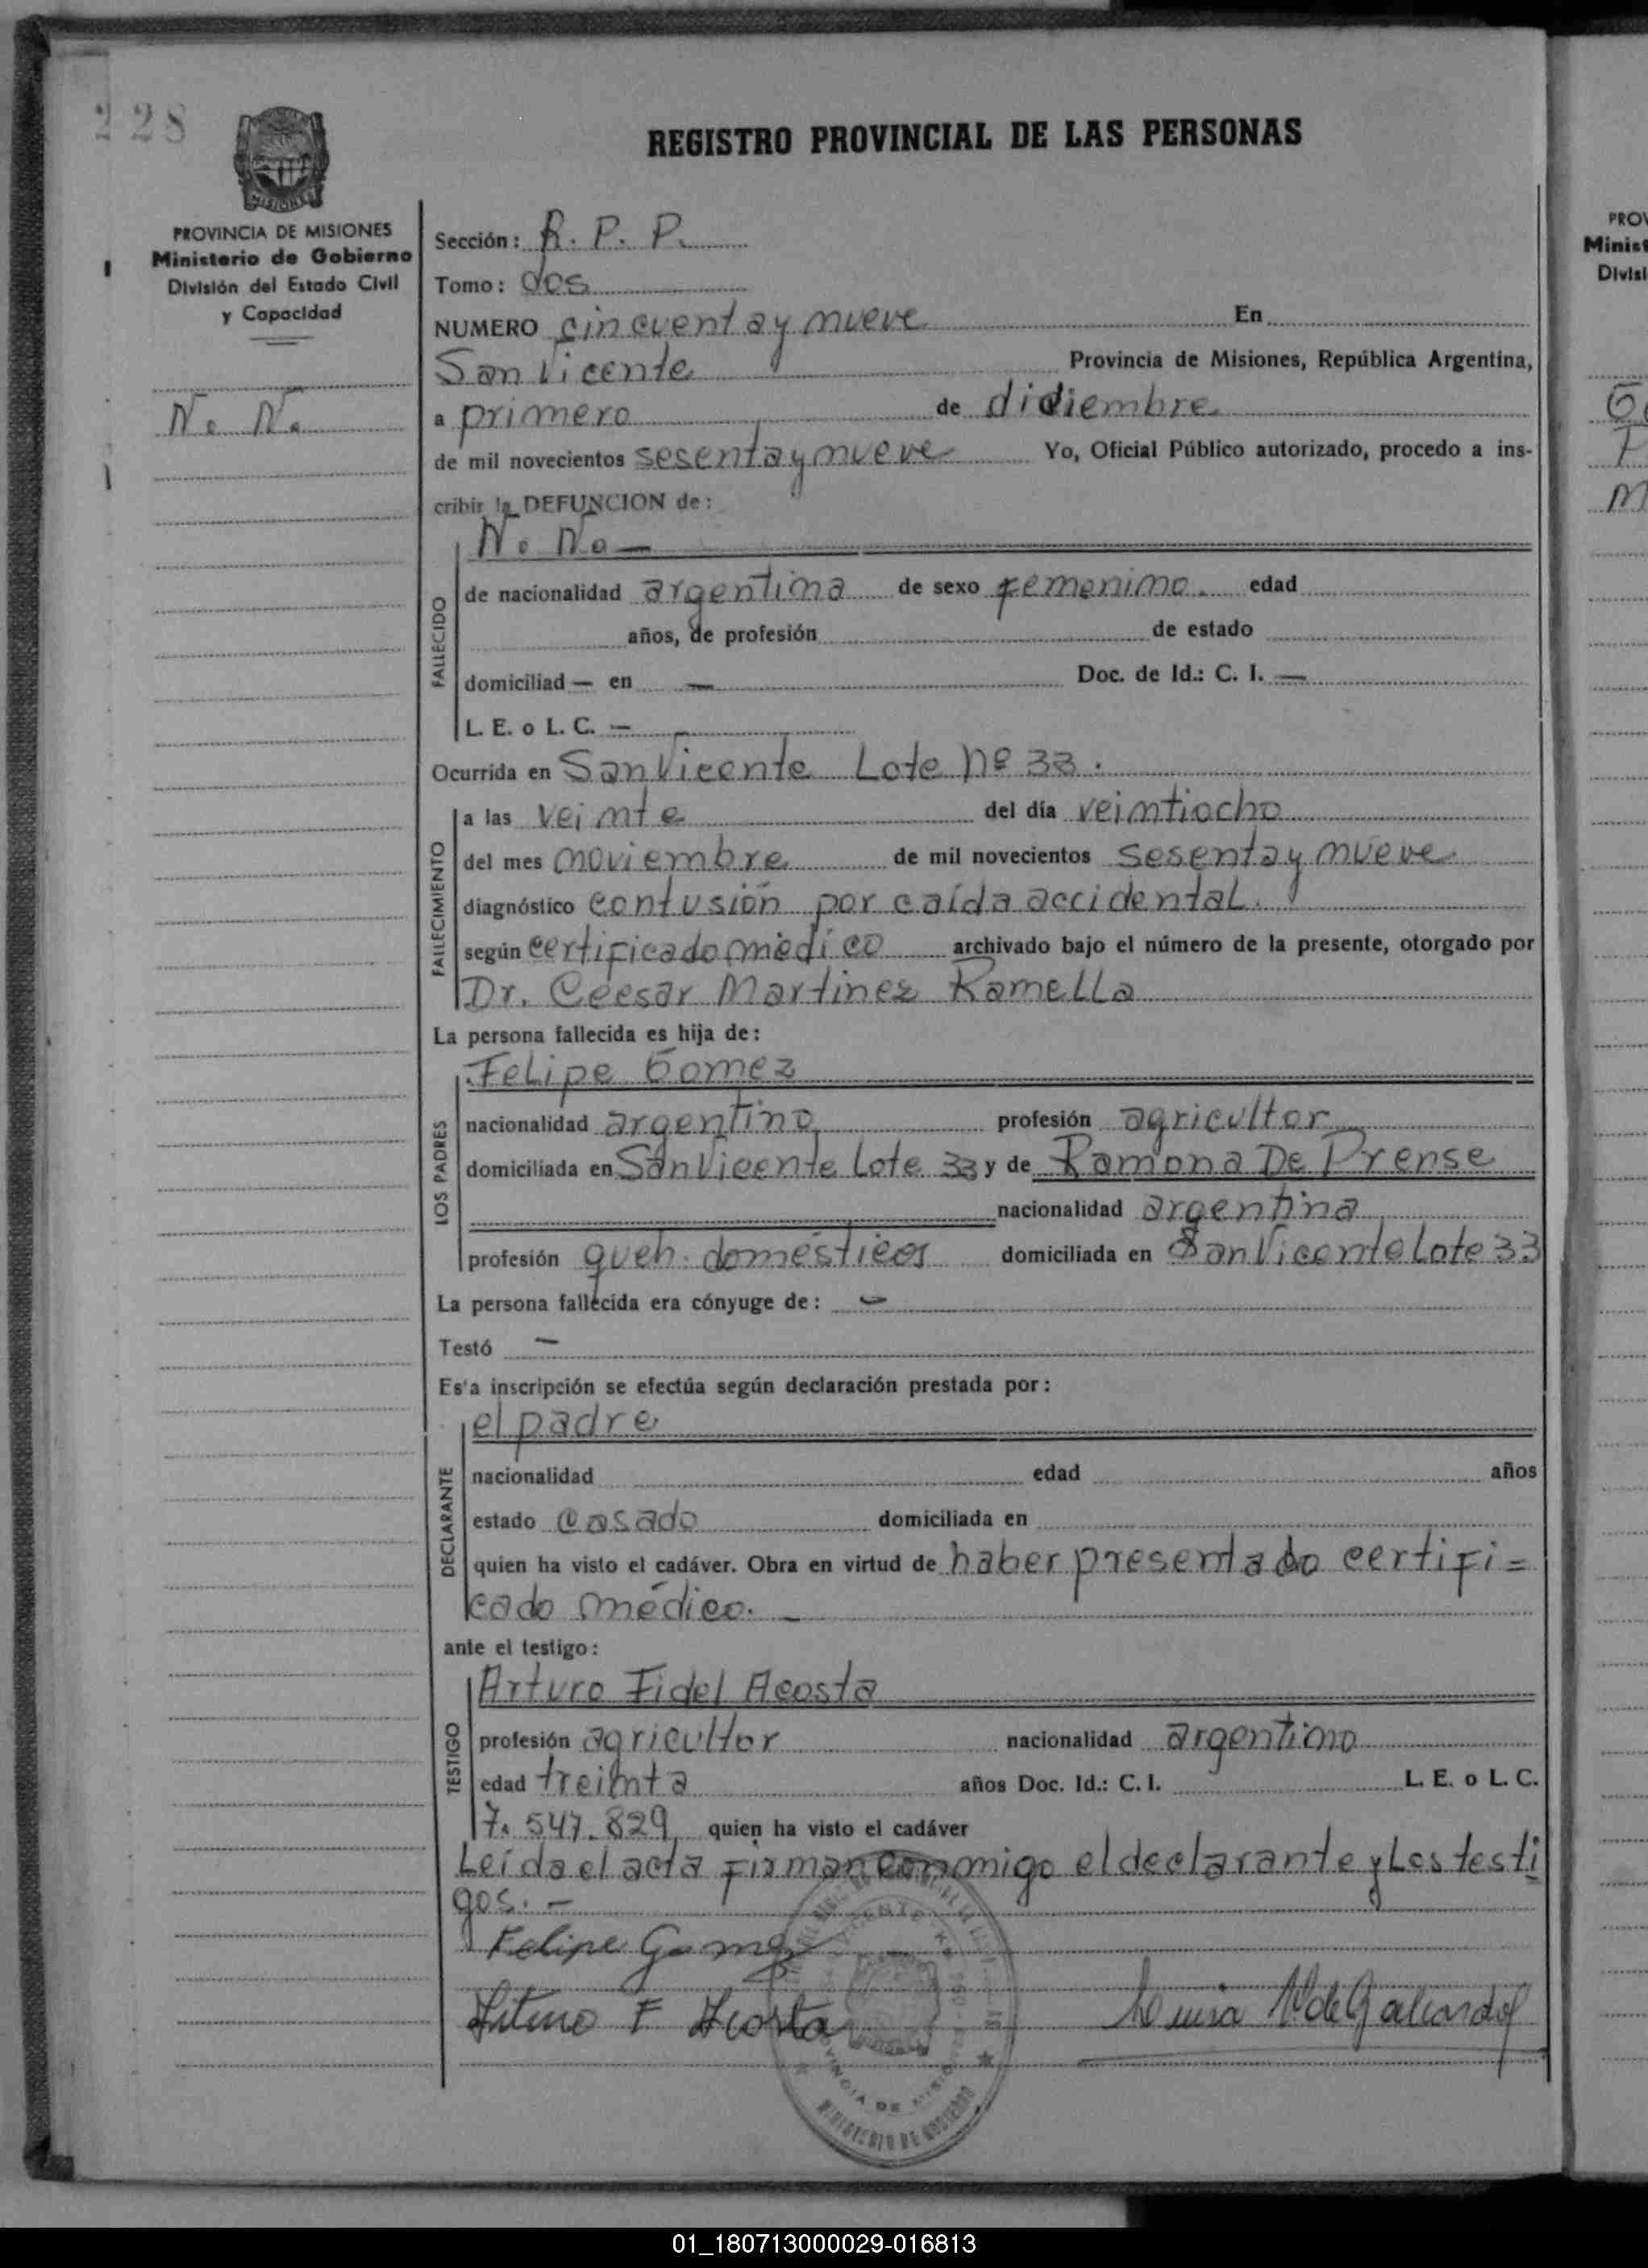 228
REGISTRO PROVINCIAL DE LAS PERSONAS
MISIONES
PROVINCIA DE MISIONES
Ministerio de Gobierno
División del Estado Civil
y Capacidad
N. N.
Sección: R. P. P.
Tomo: dos
NUMERO cincuenta y nueve En
San Vicente Provincia de Misiones, República Argentina,
a primero de didiembre
de mil novecientos sesenta y nueve Yo, Oficial Público autorizado, procedo a ins-
cribir la DEFUNCION de:
N. N. —
FALLECIDO
de nacionalidad argentina de sexo femenino. edad
años, de profesión de estado
domiciliad — en — Doc. de Id.: C. I. —
L. E. o L. C. —
Ocurrida en San Vicente Lote Nº 33.
FALLECIMIENTO
a las veinte del día veintiocho
del mes noviembre de mil novecientos sesenta y nueve
diagnóstico contusión por caída accidental.
según certificado médico archivado bajo el número de la presente, otorgado por
Dr. Ceesar Martinez Ramella
La persona fallecida es hija de:
LOS PADRES
Felipe Gomez
nacionalidad argentino profesión agricultor
domiciliada en San Vicente Lote 33 y de Ramona De Prense
nacionalidad argentina
profesión queh. domésticos domiciliada en San Vicente Lote 33
La persona fallecida era cónyuge de: —
Testó —
Es'a inscripción se efectúa según declaración prestada por:
DECLARANTE
el padre
nacionalidad edad años
estado casado domiciliada en
quien ha visto el cadáver. Obra en virtud de haber presentado certifi=
cado médico. —
ante el testigo:
TESTIGO
Arturo Fidel Acosta
profesión agricultor nacionalidad argentino
edad treinta años Doc. Id.: C. I. L. E. o L. C.
7.547.829 quien ha visto el cadáver
Leída el acta firman conmigo el declarante y Los testi
gos. —
Felipe Gomez
Arturo F Acosta
PROVINCIA DE MISIONES
MINISTERIO DE GOBIERNO
PROV
Minist
Divisi
01_180713000029-016813